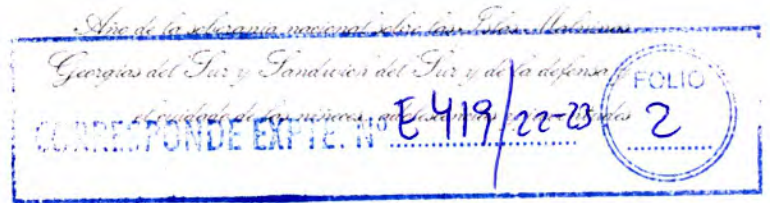 Año de la soberanía nacional sobre las Islas Malvinas
Georgias del Sur y Sandwich del Sur y de la defensa y
el cuidado de las niñeces, adolescencias
CORRESPONDE EXPTE. Nº E 419/22-23
FOLIO
2